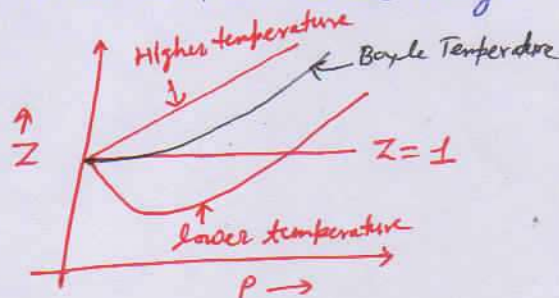 Higher temperature
Boyle Temperature
Z
Z = 1
lower temperature
P →